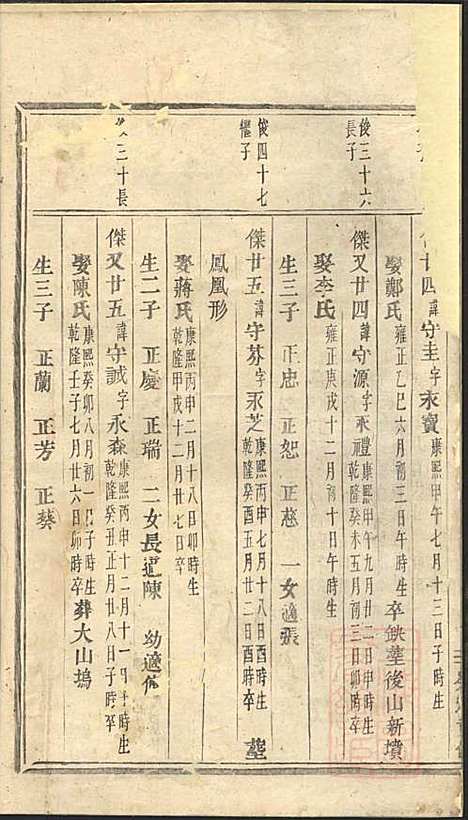 廿四諱守圭字永賓康熙甲午七月十三日子時生
娶鄭氏雍正乙巳六月初三日午時生 卒缺塟後山新墳
俊三十六長子
傑又廿四諱守源字永禮康熙甲午九月廿二日申時生乾隆癸未五月初三日卯時卒
娶李氏雍正庚戌十二月初十日午時生
生三子 正忠 正恕 正慈 一女適張
俊四十七繼子
傑廿五諱守芥字永芝康熙丙申七月十八日酉時生乾隆癸酉五月廿二日酉時卒 塟
鳳凰形
娶蔣氏康熙丙申二月十八日卯時生乾隆甲戌十二月廿七日卒
生二子 正慶 正瑞 二女長適陳 幼適
二十長
傑又廿五諱守誠字永森康熙丙申十二月十一日子時生乾隆癸丑正月廿八日子時卒
娶陳氏康熙癸卯八月初一日子時生乾隆壬子七月廿六日卯時卒葬大山塢
生三子 正蘭 正芳 正葵